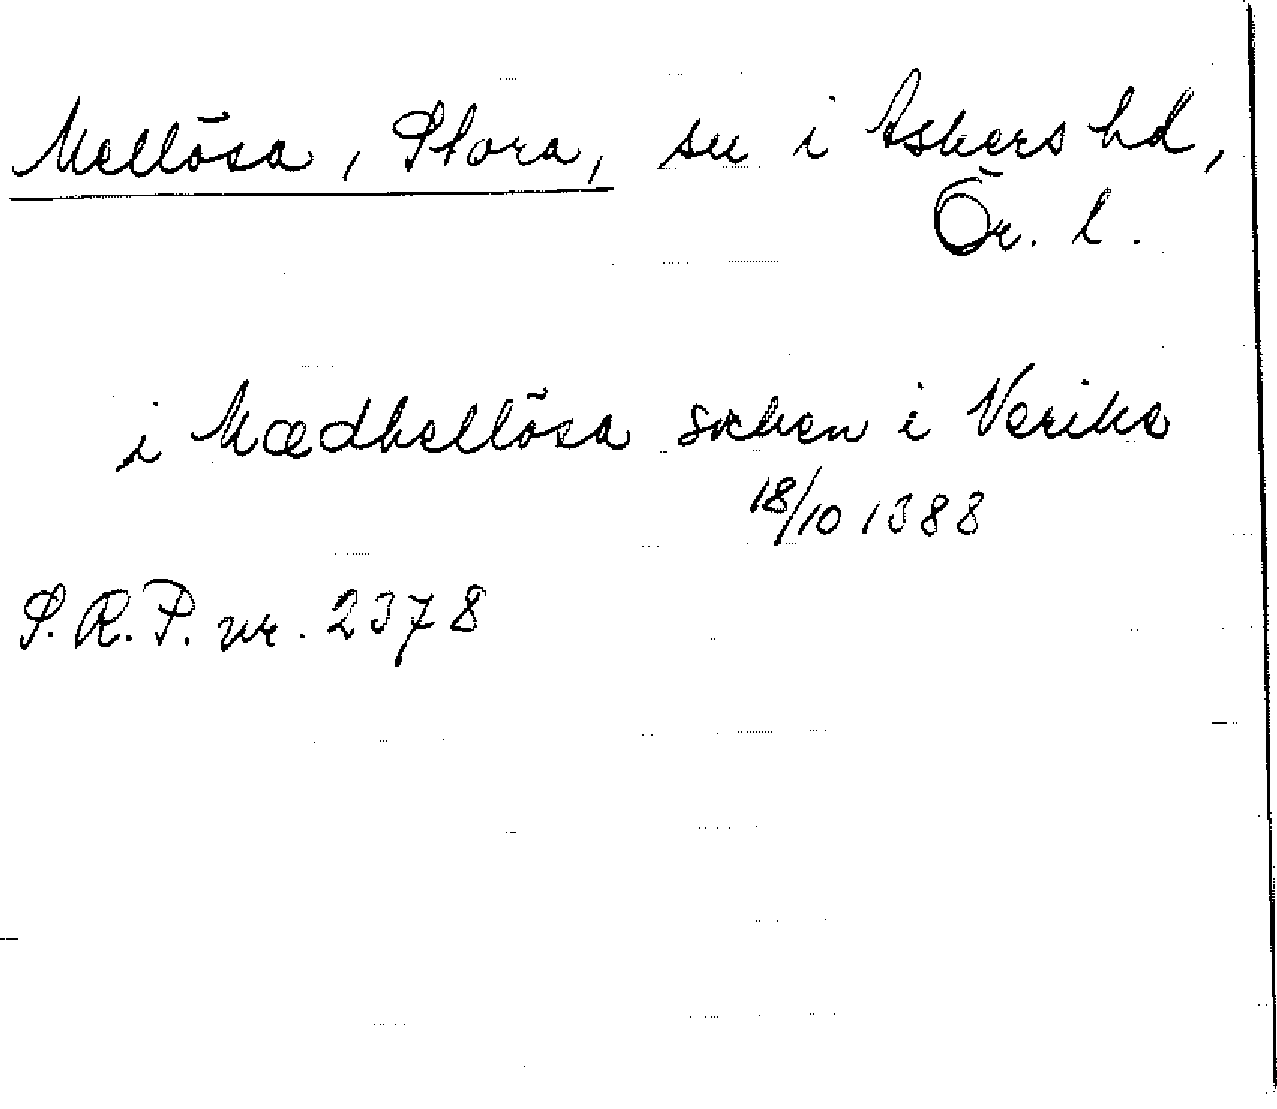 Mellösa, Stora, sn i Askers hd,
Ör. l.
i Mædhellösa soken i Nerike
18/10 1388
S.R.P. nr. 2378